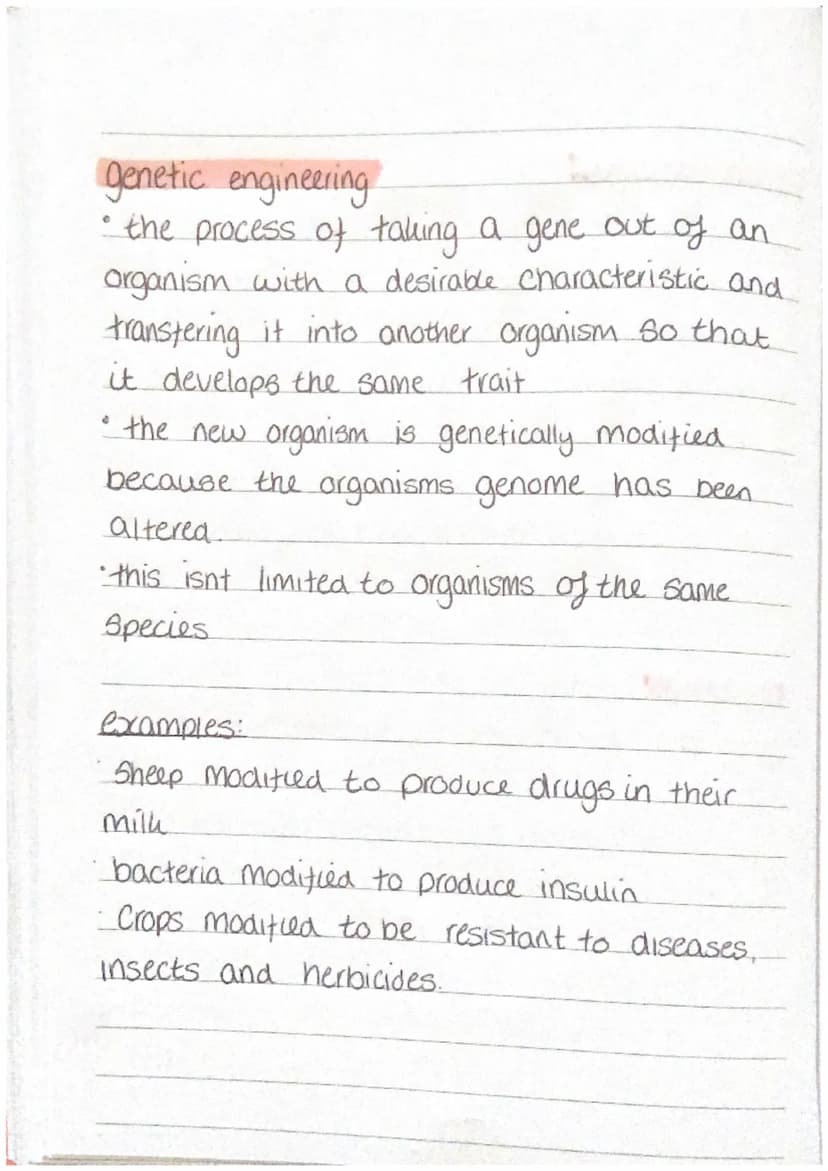 genetic engineering
• the process of taking a gene out of an
organism with a desirable characteristic and
transfering it into another organism so that
it develops the same trait
• the new organism is genetically modified
because the organisms genome has been
altered.
• this isnt limited to organisms of the same
species
examples:
· Sheep modified to produce drugs in their
milk
· bacteria modified to produce insulin
· Crops modified to be resistant to diseases,
insects and herbicides.